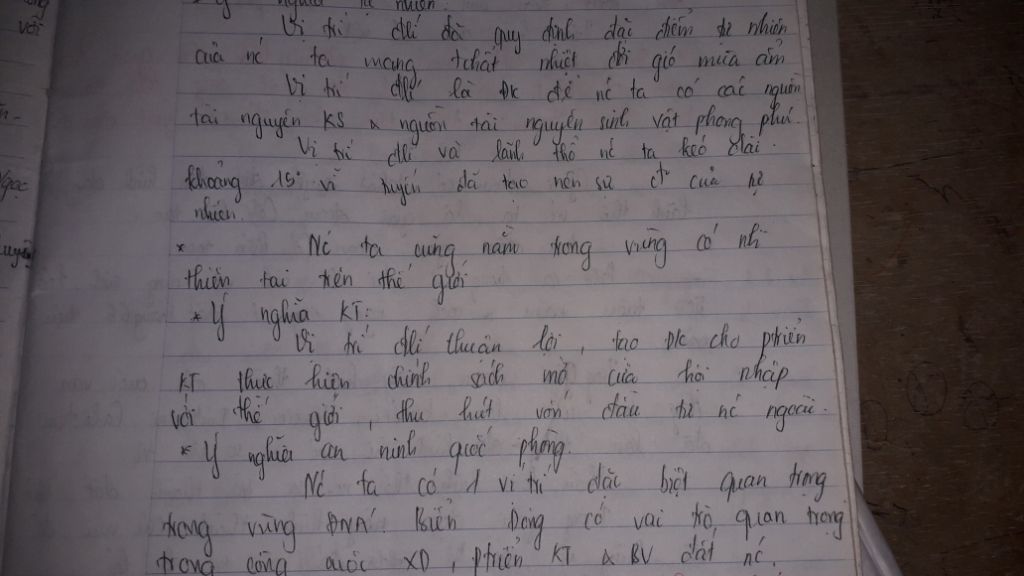 * Ý nghĩa tự nhiên:
Vị trí đlí đã quy định đặc điểm tự nhiên
của nc ta mang tchất nhiệt đới gió mùa ẩm
Vị trí đlí là ĐK để nc ta có các nguồn
tài nguyên KS & nguồn tài nguyên sinh vật phong phú.
Vị trí đlí và lãnh thổ nc ta kéo dài
khoảng 15° vĩ tuyến đã tạo nên sự của tự
nhiên.
* Nc ta cũng nằm trong vùng có nh
thiên tai trên thế giới
* Ý nghĩa KT:
Vị trí đlí thuận lợi, tạo ĐK cho ptriển
KT thực hiện chính sách mở cửa hội nhập
với thế giới, thu hút vốn đầu tư nc ngoài.
* Ý nghĩa an ninh quốc phòng.
Nc ta có 1 vị trí đặc biệt quan trọng
trong vùng ĐNÁ. Biển Đông có vai trò quan trọng
trong công cuộc XD, ptriển KT & BV đất nc.
với
Ngọc